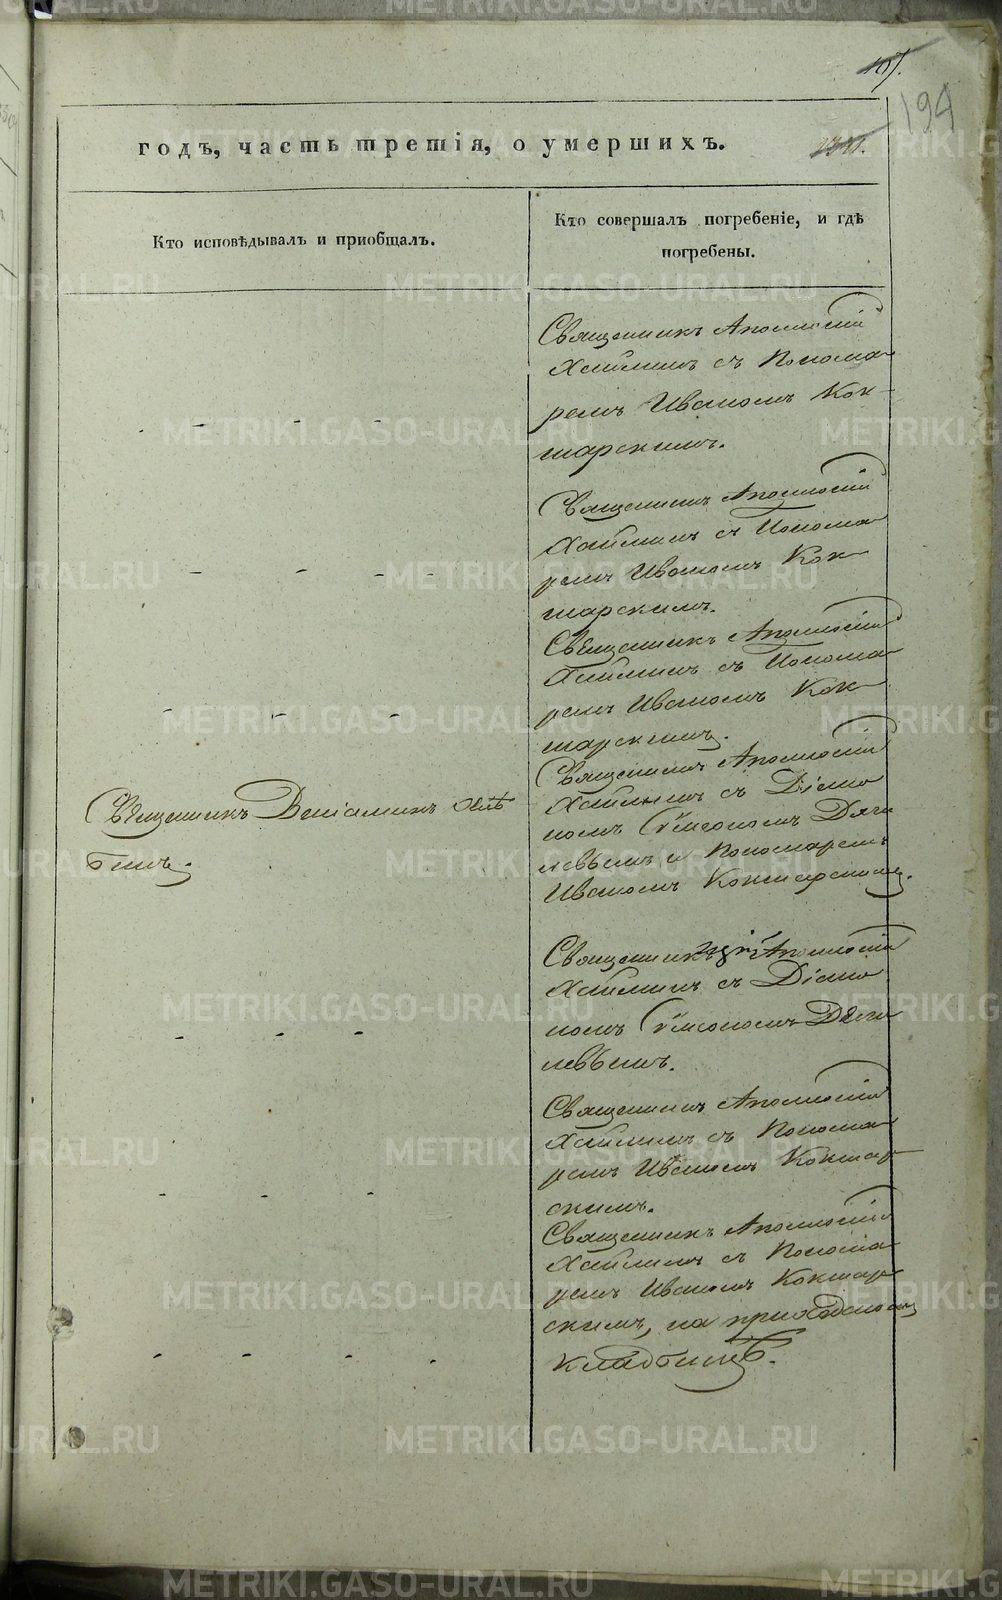 107.
194
годъ, часть третія, о умершихъ.
Кто исповѣдывалъ и приобщалъ.
Кто совершалъ погребеніе, и гдѣ
погребены.
Священникъ Аполлоній
Хайлинъ съ Понома
ремъ Иваномъ Кок-
шарскимъ.
Священникъ Аполлоній
Хайлинъ съ Понома
ремъ Иваномъ Кок
шарскимъ.
Священникъ Аполлоній
Хайлинъ съ Понома
ремъ Иваномъ Кок
шарскимъ.
Священникъ Веніаминъ
бинъ.
Священникъ Аполлоній
Хайлинъ съ Діако
номъ Сѵмеономъ Дяги
левымъ и Пономаремъ
Иваномъ Кокшарскимъ.
Священникъ Аполлоній
Хайлинъ съ Діако
номъ Сѵмеономъ Дяги
левымъ.
Священникъ Аполлоній
Хайлинъ съ Понома
ремъ Иваномъ Кокшар
скимъ.
Священникъ Аполлоній
Хайлинъ съ Понома
ремъ Иваномъ Кокшар
скимъ, на приходскомъ
кладбищѣ.
METRIKI.GASO-URAL.RU